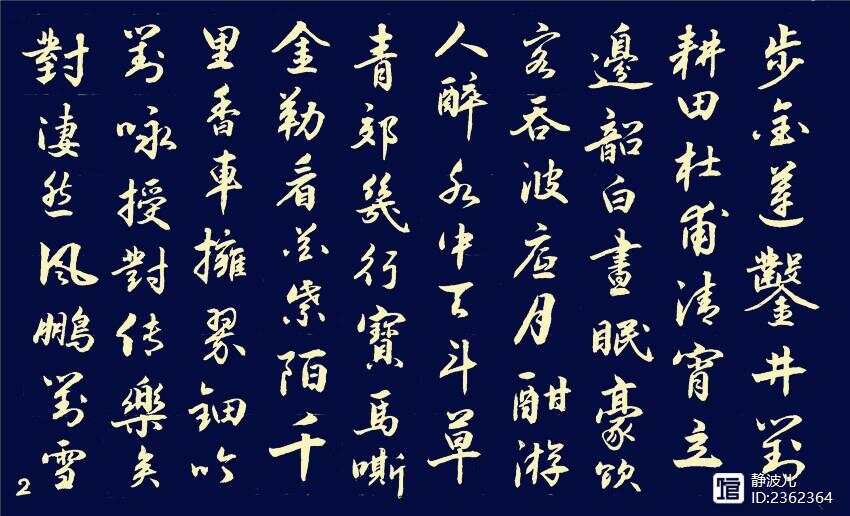 步金蓮鑿井對
耕田杜甫清宵立
邊韶白晝眠豪飲
客吞波底月酣游
人醉水中天斗草
青郊幾行寶馬嘶
金勒看花紫陌千
里香車擁翠鈿吟
對咏授對传樂矣
對淒然風鵬對雪
2
静波儿
ID:2362364